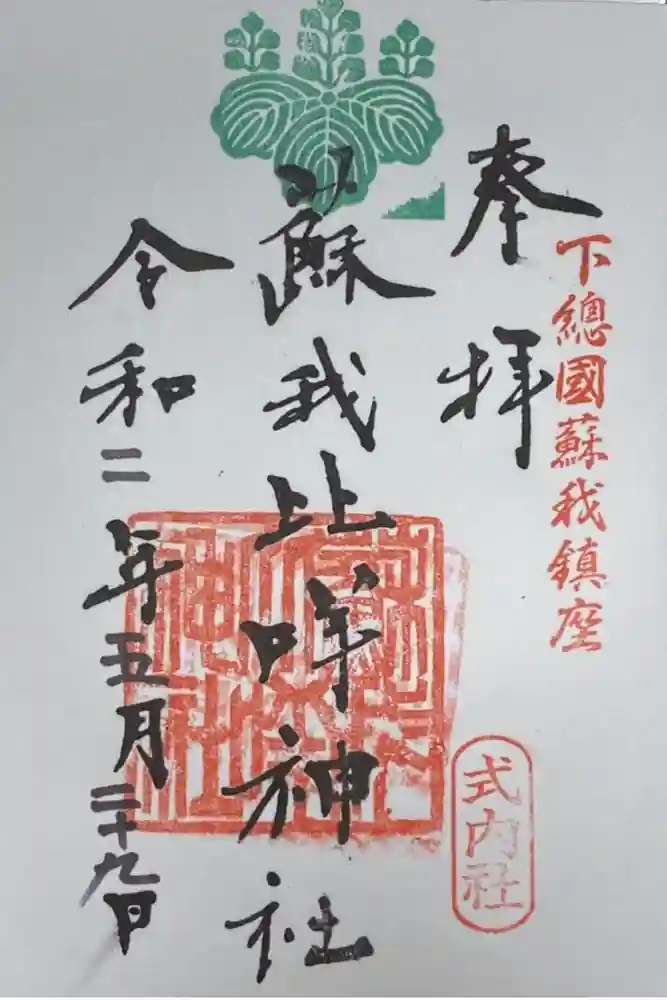 下總國蘇我鎮座
奉拝
蘇我比咩神社
令和二年五月二十九日
式内社